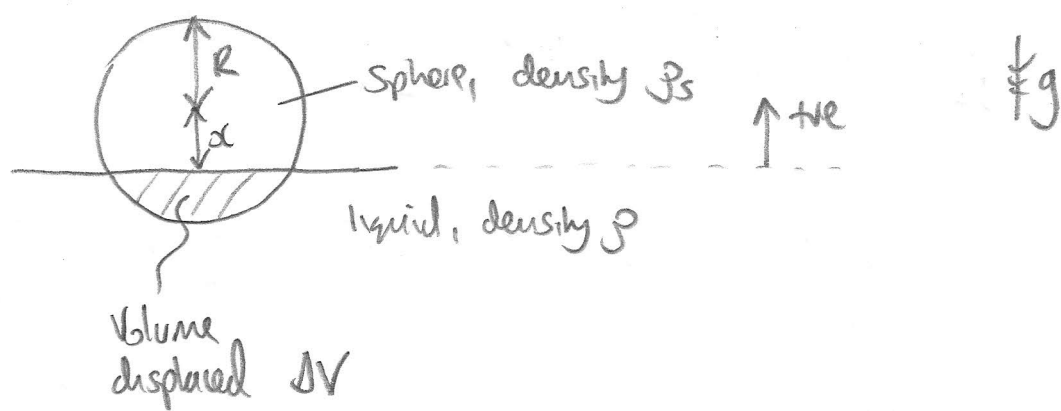 R
Sphere, density ρs
g
+ve
x
liquid, density ρ
Volume
displaced ΔV